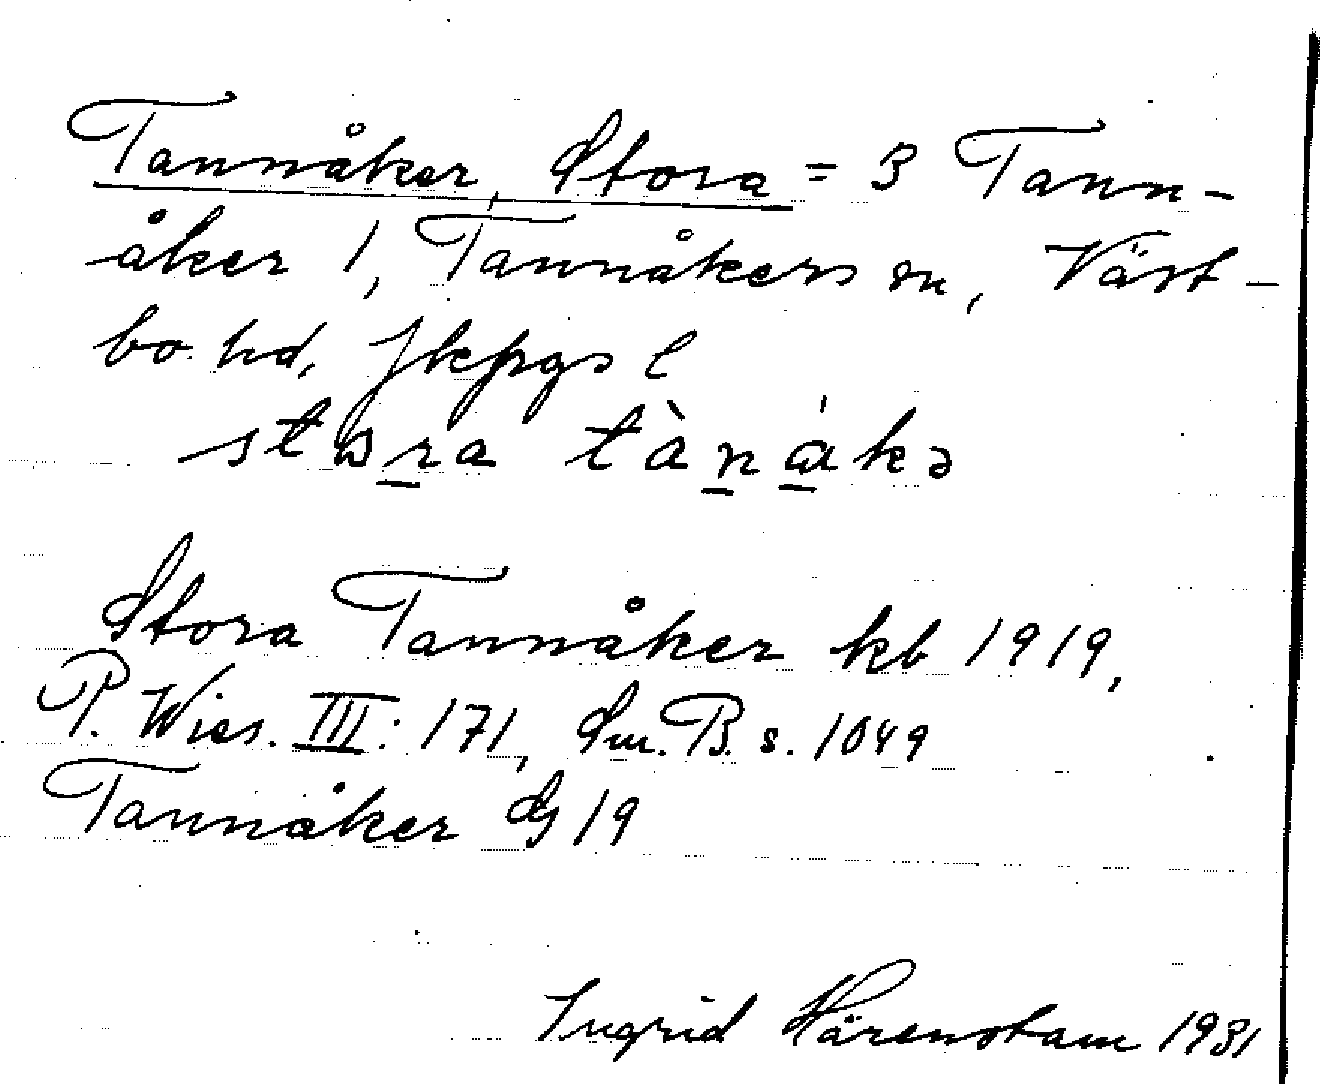 Tannåker, Stora = 3 Tann-
åker 1, Tannåkers sn, Väst-
bo hd, Jkpgs l
Stora Tannåker kb 1919,
P. Wies. III: 171, Sm. B. s. 1049
Tannåker Gs 19
Ingrid Härenstam 1931